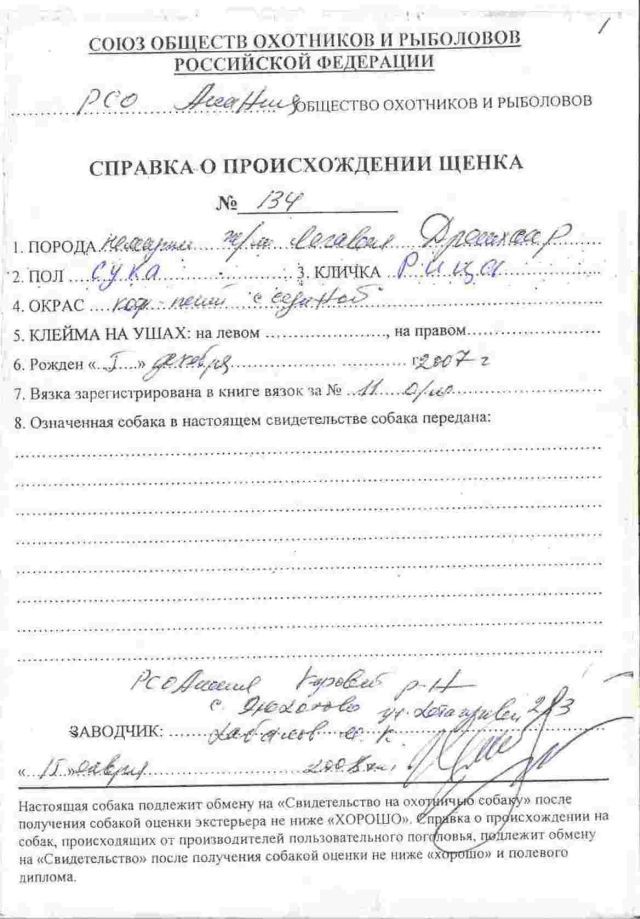 1
СОЮЗ ОБЩЕСТВ ОХОТНИКОВ И РЫБОЛОВОВ
РОССИЙСКОЙ ФЕДЕРАЦИИ
РСО Алания ОБЩЕСТВО ОХОТНИКОВ И РЫБОЛОВОВ
СПРАВКА О ПРОИСХОЖДЕНИИ ЩЕНКА
№ 134
1. ПОРОДА ж/ш легавая Дратхаар
2. ПОЛ сука 3. КЛИЧКА Рица
4. ОКРАС коф-пегий с сединой
5. КЛЕЙМА НА УШАХ: на левом , на правом
6. Рожден « I » декабря г 2007 г
7. Вязка зарегистрирована в книге вязок за № 11
8. Означенная собака в настоящем свидетельстве собака передана:
РСО Алания р-н
с.
ЗАВОДЧИК:
2008
Настоящая собака подлежит обмену на «Свидетельство на охотничью собаку» после
получения собакой оценки экстерьера не ниже «ХОРОШО». Справка о происхождении на
собак, происходящих от производителей пользовательного поголовья, подлежит обмену
на «Свидетельство» после получения собакой оценки не ниже «хорошо» и полевого
диплома.